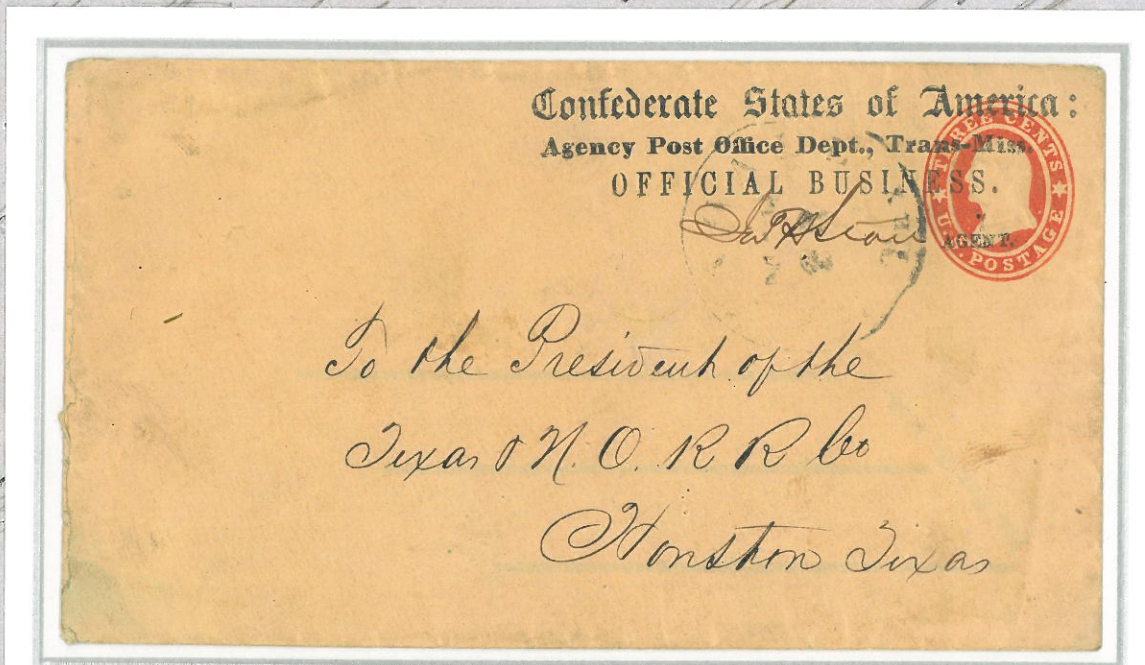 Confederate States of America:
Agency Post Office Dept., Trans-Miss.
OFFICIAL BUSINESS.
AGENT.
THREE CENTS
U.S. POSTAGE
To the President of the
Texas & N. O. R R Co
Houston Texas